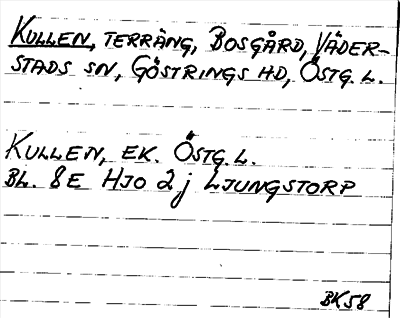 KULLEN, TERRÄNG, BOSGÅRD, VÄDER-
STADS SN, GÖSTRINGS HD, ÖSTG. L.
KULLEN, EK. ÖSTG. L.
BL. 8E HJO 2j LJUNGSTORP
BK58